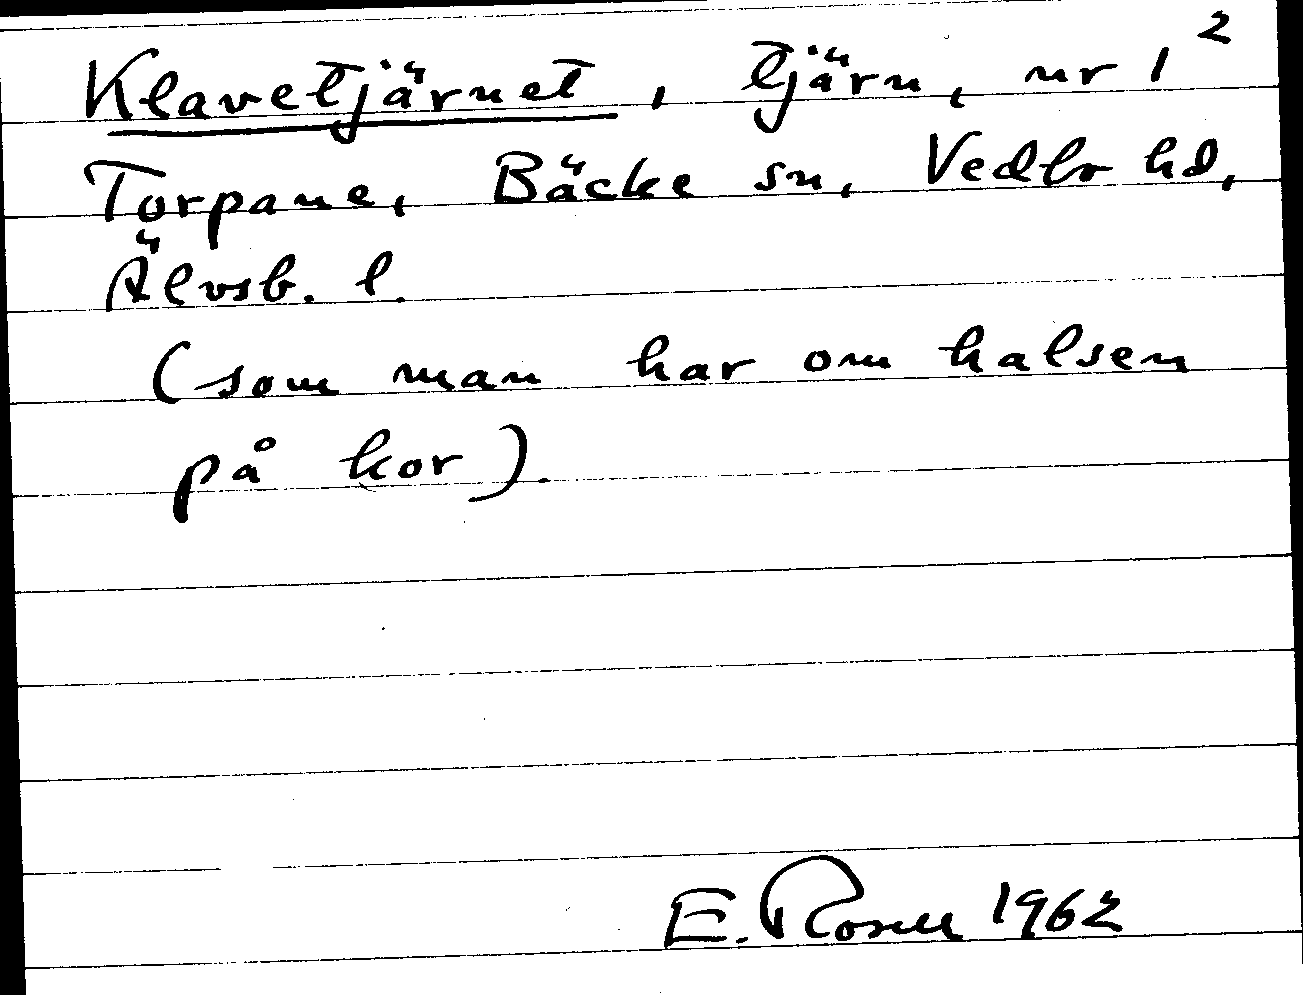 Klavetjärnet, tjärn, nr 1 2
Torpane, Bäcke sn, Vedbo hd,
Älvsb. l.
(som man har om halsen
på kor).
E. Rosell 1962